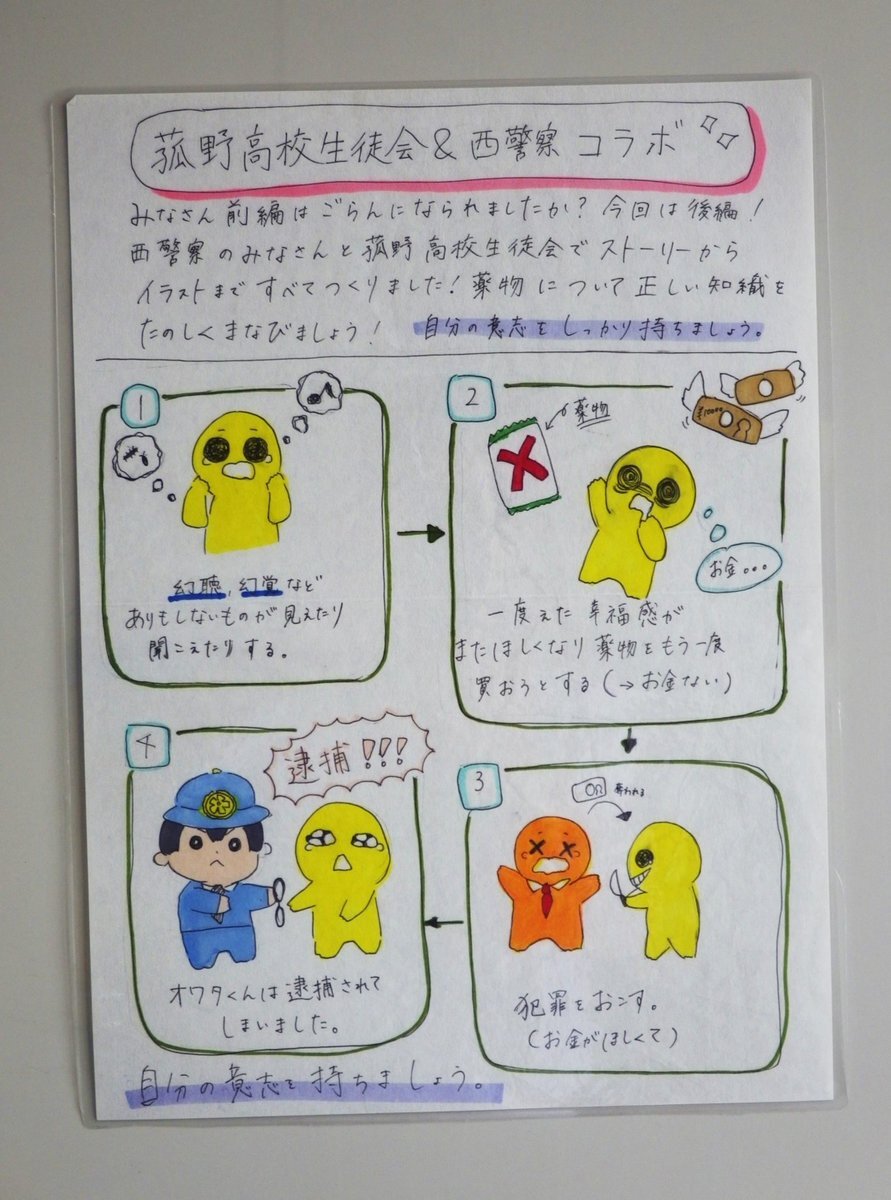 菰野高校生徒会&西警察 コラボ
みなさん前編はごらんになられましたか?今回は後編!
西警察のみなさんと菰野高校生徒会でストーリーから
イラストまですべてつくりました!薬物について正しい知識を
たのしくまなびましょう! 自分の意志をしっかり持ちましょう。
1
幻聴,幻覚など
ありもしないものが見えたり
聞こえたりする。
2
薬物
¥10000
お金...
一度えた幸福感が
またほしくなり薬物をもう一度
買おうとする(→お金ない)
3
奪われる
犯罪をおこす。
(お金がほしくて)
4
逮捕!!!
オワタくんは逮捕されて
しまいました。
自分の意志を持ちましょう。